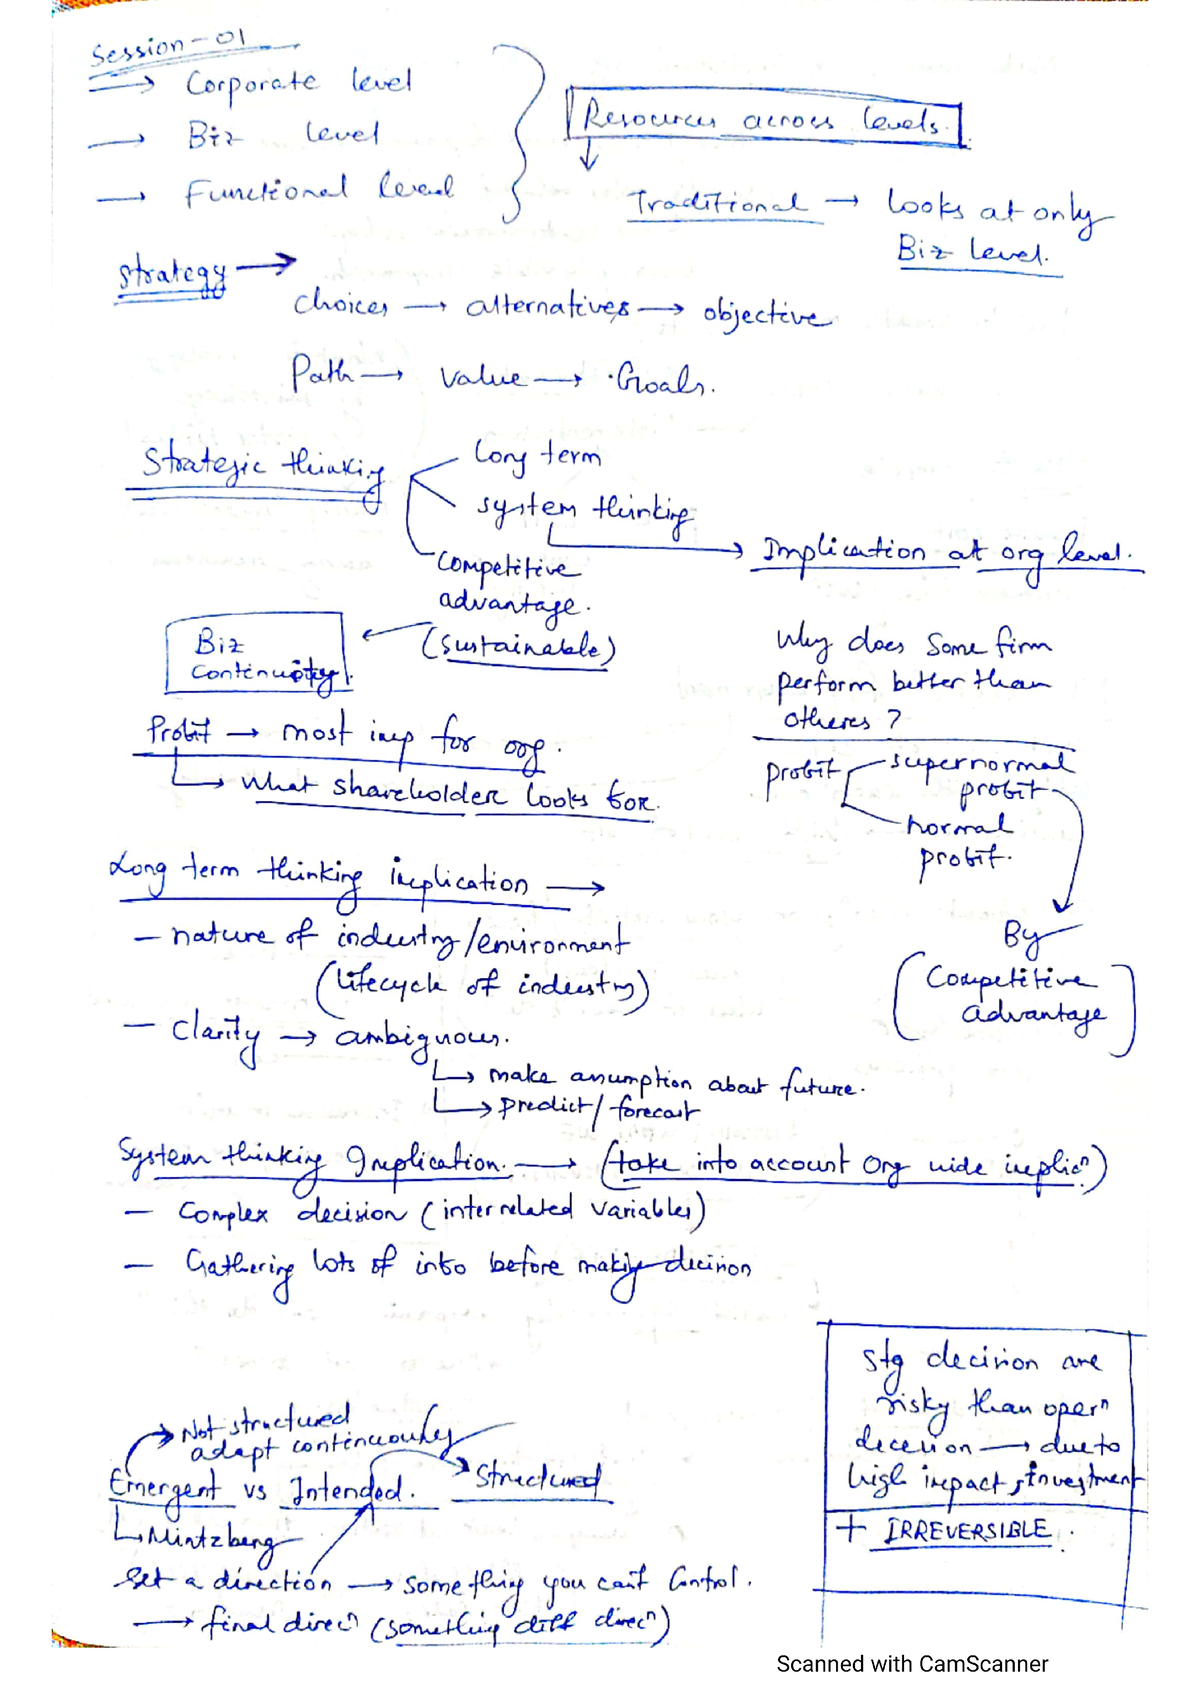 Session-01
→ Corporate level
→ Biz level
→ Functional level
Resources across levels.
↓
Traditional → looks at only
Biz level.
Strategy →
choices → alternatives → objective
Path → value → Goals.
Strategic thinking
Long term
system thinking
→ Implication at org level.
competitive
advantage.
(sustainable)
Biz
continuity.
Why does some firm
perform better than
otheres ?
Profit → most imp for org.
↳ What shareholder looks for.
profit
supernormal
profit
normal
profit.
By
(Competitive
advantage)
Long term thinking implication →
– nature of industry/environment
(lifecycle of industry)
– Clarity → ambiguous.
↳ make assumption about future.
↳ predict/ forecast
System thinking Implication. → (take into account Org wide implicⁿ)
– Complex decision (inter related variables)
– Gathering lots of info before making decision
Stg decision are
risky than operⁿ
decesion → due to
high impact, investment
+ IRREVERSIBLE.
→ Not structured
adapt continuously
Emergent vs Intended.
→ Structured
↳ Mintzberg
Set a direction → something you can't Control.
→ final direcⁿ (something diff direcⁿ)
Scanned with CamScanner